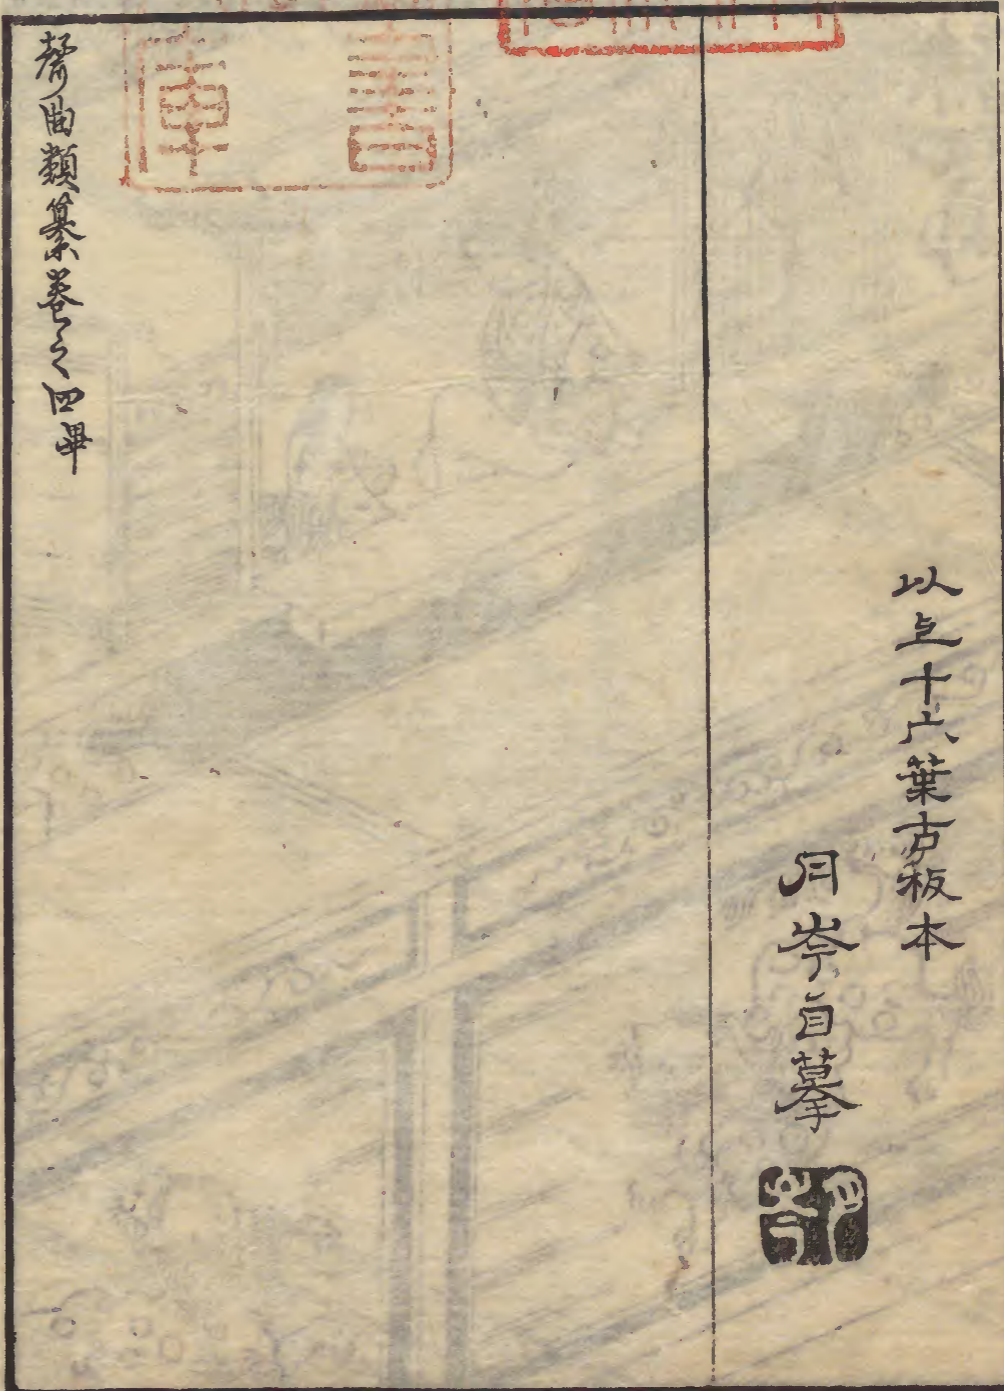 以上十六葉古板本
月岑自摹
月岑
聲曲類纂巻之四畢